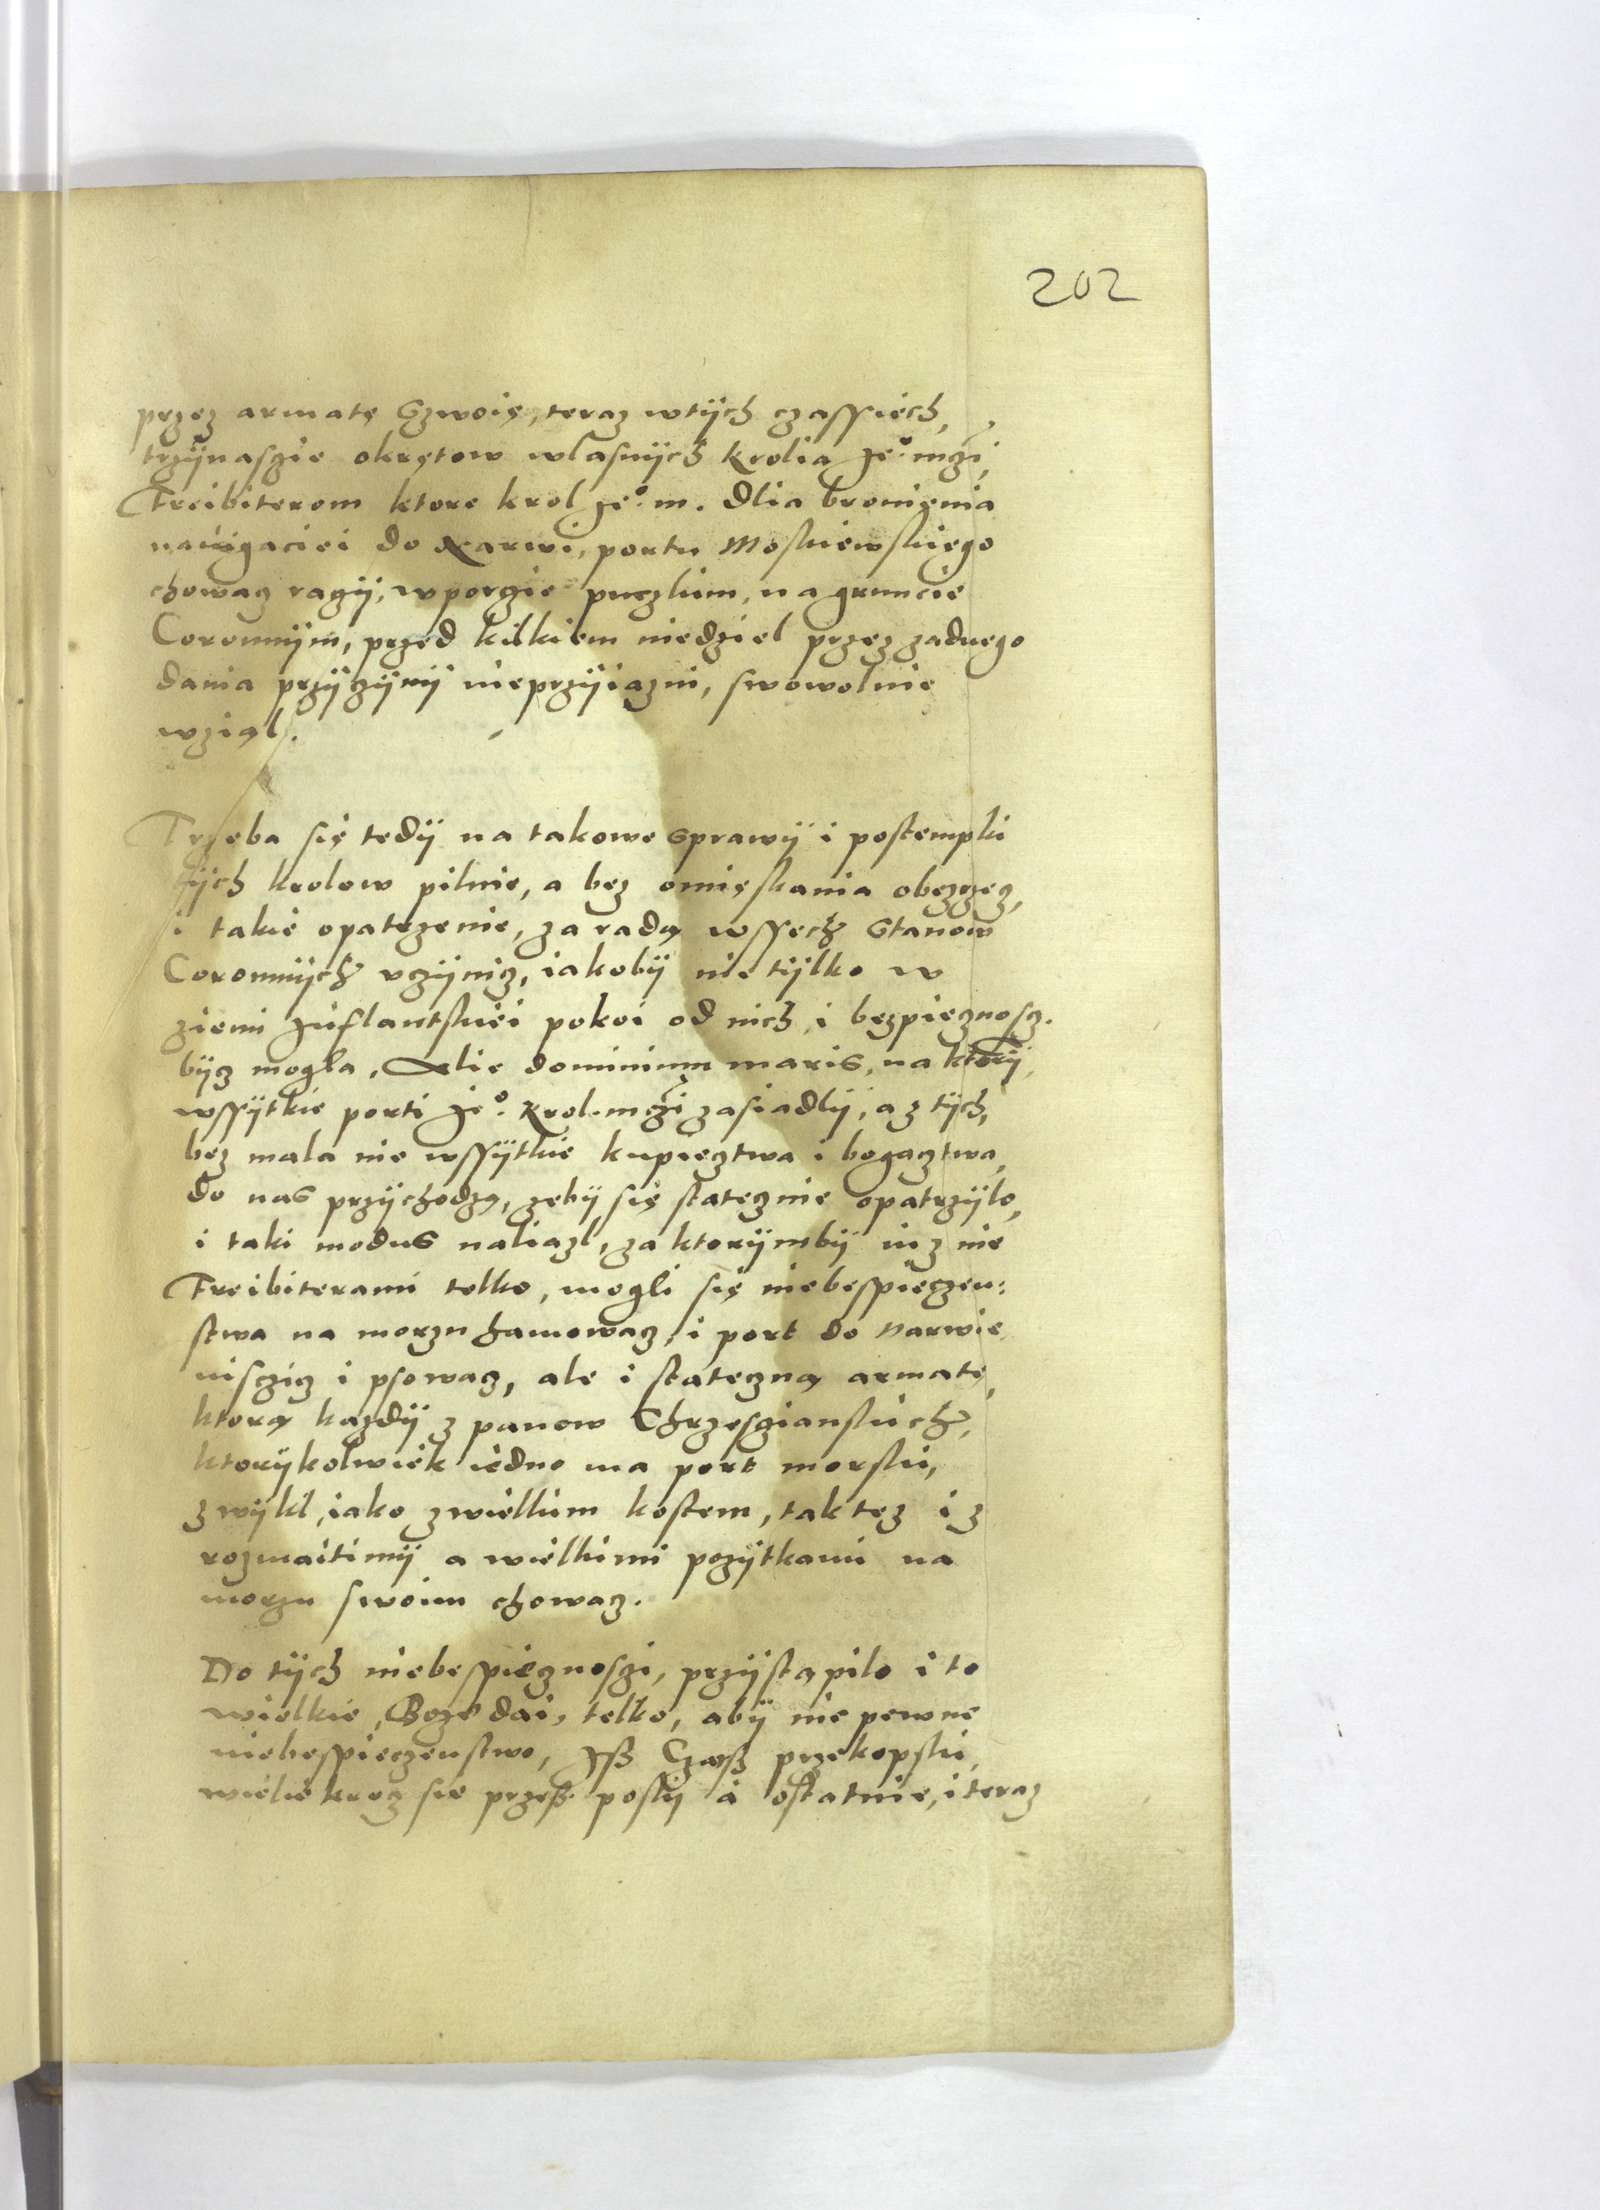 202
przez armatę Szwoię, teraz wtÿch czassiech,
trzÿnaszie okrętow wlasnÿch Krolia Je°. mczi,
Freibiterom ktore krol Je°. m. dlia bronienia
nauigaciei do Narwi, portu Moskiewskiego
chowacz raczÿ, w porczie puczkim, na gruncie
Coronnÿm, przed kilkiem niedziel przez zadnego
dania przÿczÿnÿ nieprzÿiazni, swowolnie
wziął.
Trzeba się tedÿ na takowe sprawÿ i postempki
tÿch krolow pilnie, a bez omięskania obezrzecz,
i takie opatrzenie, za radą wssech Stanow
Coronnÿch vczÿnicz, iakobÿ nie tÿlko w
ziemi Juflantskiei pokoi od nich i bezpiecznoscz.
bÿcz mogła, Alie dominium maris, na ktorÿ
wssÿtkie porti Je°. Krol. mczi zasiadlÿ, a z tÿch,
bez mala nie wssÿtkie kupiecztwa i bogacztwa,
do nas przÿchodzą, zebÿ się statecznie opatrzÿlo,
i taki modus naliazl, za ktorÿmbÿ iuz nie
Freibiterami tolko, mogli się niebespieczen:
stwa na morzu hamowacz, i port do Narwie
nisczicz i psowacz, ale i stateczną armatę,
ktorą kazdÿ z panow Chrzesczianskich,
ktorÿkolwiek iedno ma port morski,
zwÿkl, iako zwielkim kostem, tak tez i z
rozmaitimÿ a wielkimi pozÿtkami na
morzu swoim chowacz.
Do tÿch niebespiecznosczi, przÿstąpilo i to
wielkie, Boze dai, tolko, abÿ nie pewne
niebespieczenstwo, Jß Czarß przekopski,
wieliekrocz sie przeß poslÿ a ostatnie, i teraz